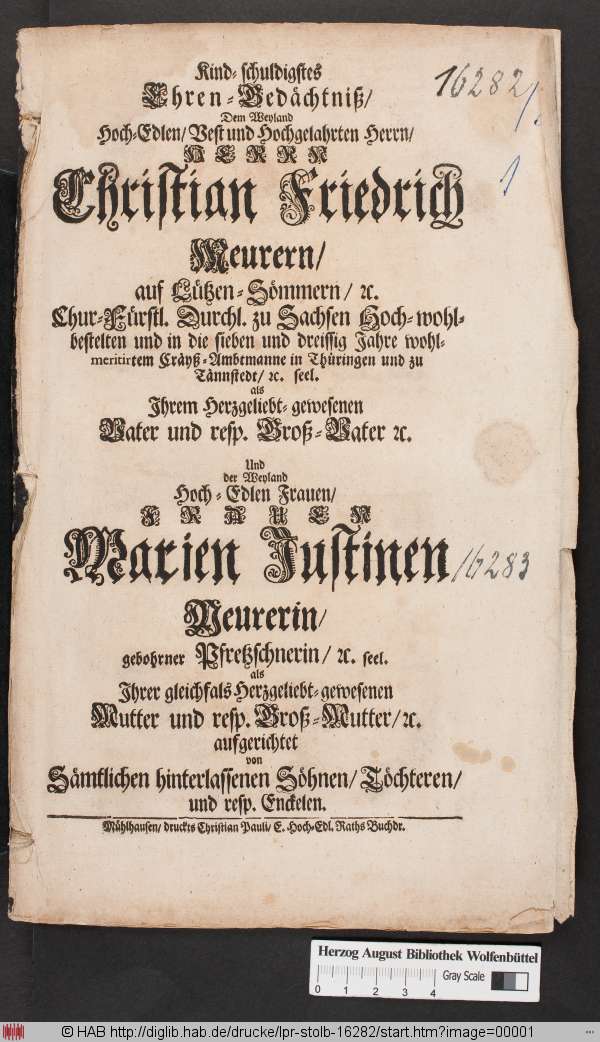 Kind-schuldigstes
Ehren-Gedächtniß/
Dem Weyland
Hoch-Edlen/ Vest und Hochgelahrten Herrn/
HERRN
Christian Friedrich
Meurern/
auf Lützen-Sömmern/ ꝛc.
Chur-Fürstl. Durchl. zu Sachsen Hoch-wohl-
bestelten und in die sieben und dreissig Jahre wohl-
meritirtem Cräyß-Ambtmanne in Thüringen und zu
Tännstedt/ ꝛc. seel.
als
Ihrem Herzgeliebt-gewesenen
Vater und resp. Groß-Vater ꝛc.
Und
der Weyland
Hoch-Edlen Frauen/
FRAUEN
Marien Justinen
Meurerin/
gebohrner Pfretzschnerin/ ꝛc. seel.
als
Ihrer gleichfals Herzgeliebt-gewesenen
Mutter und resp. Groß-Mutter/ ꝛc.
aufgerichtet
von
Sämtlichen hinterlassenen Söhnen/ Töchteren/
und resp. Enckelen.
Mühlhausen/ druckts Christian Pauli/ E. Hoch-Edl. Raths Buchdr.
16282/1.
1
16283
Herzog August Bibliothek Wolfenbüttel
0 1 2 3 4
Gray Scale
© HAB http://diglib.hab.de/drucke/lpr-stolb-16282/start.htm?image=00001